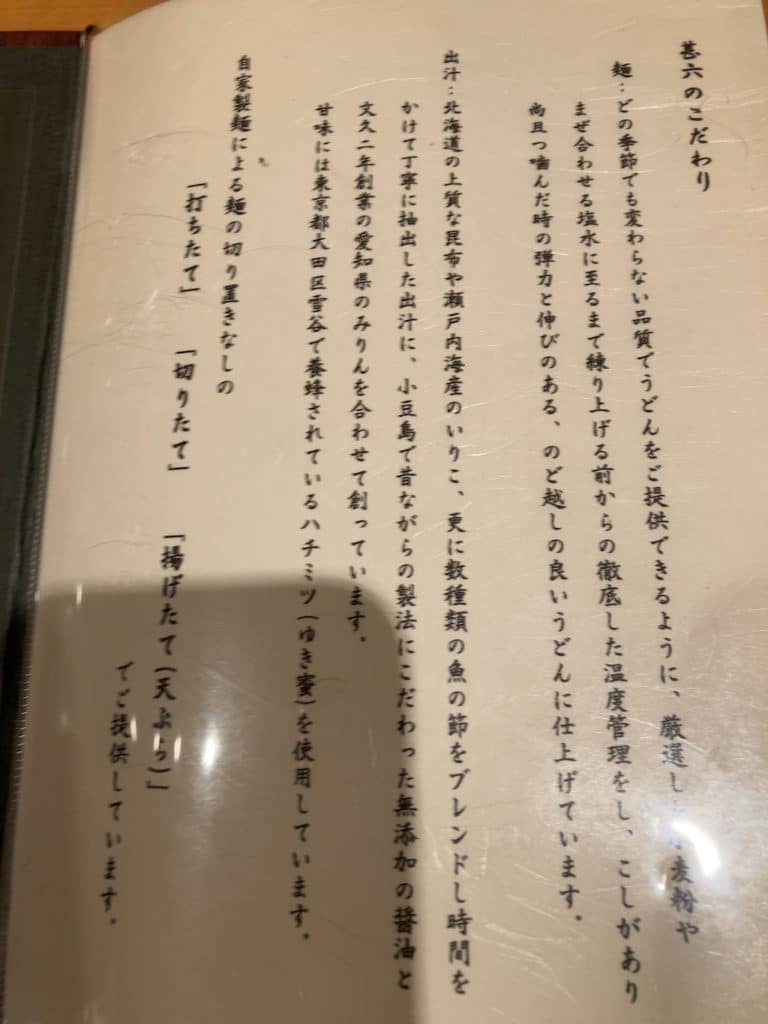 甚六のこだわり
麺：どの季節でも変わらない品質でうどんをご提供できるように、厳選した小麦粉や
まぜ合わせる塩水に至るまで練り上げる前からの徹底した温度管理をし、こしがあり
尚且つ噛んだ時の弾力と伸びのある、のど越しの良いうどんに仕上げています。
出汁：北海道の上質な昆布や瀬戸内海産のいりこ、更に数種類の魚の節をブレンドし時間を
かけて丁寧に抽出した出汁に、小豆島で昔ながらの製法にこだわった無添加の醤油と
文久二年創業の愛知県のみりんを合わせて創っています。
甘味には東京都大田区雪谷で養蜂されているハチミツ(ゆき蜜)を使用しています。
自家製麺による麺の切り置きなしの
「打ちたて」　「切りたて」　「揚げたて(天ぷら)」
でご提供しています。